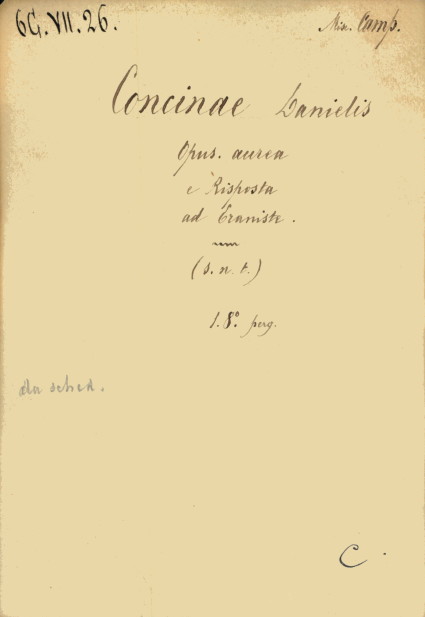 6G.VII.26.
Misc. Camp.
Concinae Danielis
Opus. aurea
e Risposta
ad Eraniste.
(s. n. t.)
1. 8.° perg.
da sched.
C.